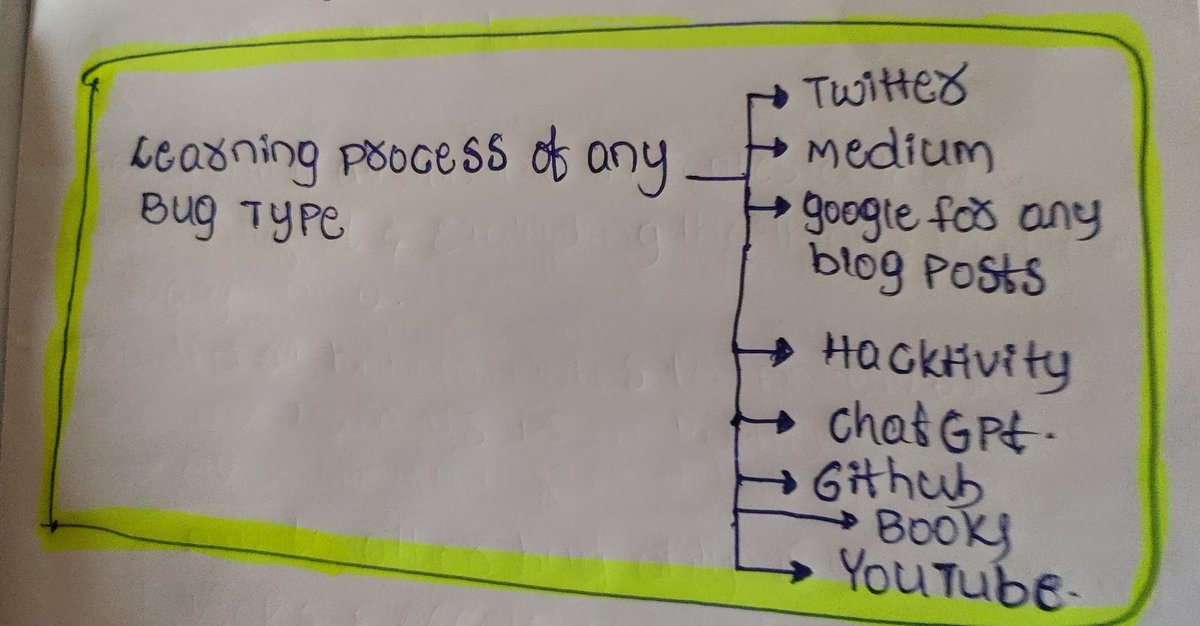 Learning process of any
Bug Type
Twitter
medium
google for any
blog posts
Hacktivity
ChatGPt.
Github
Books
YouTube.